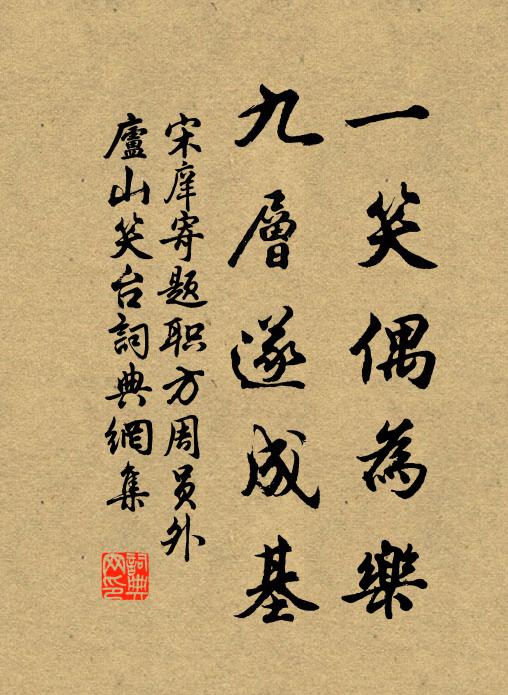 一笑偶為樂
九層遂成基
宋庠寄題职方周员外
廬山笑台詞典網集
詞典
网印